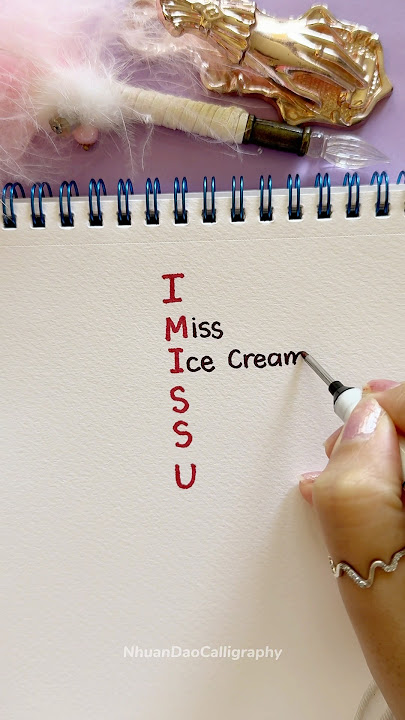 I
Miss
Ice Cream
S
S
U
NhuanDaoCalligraphy